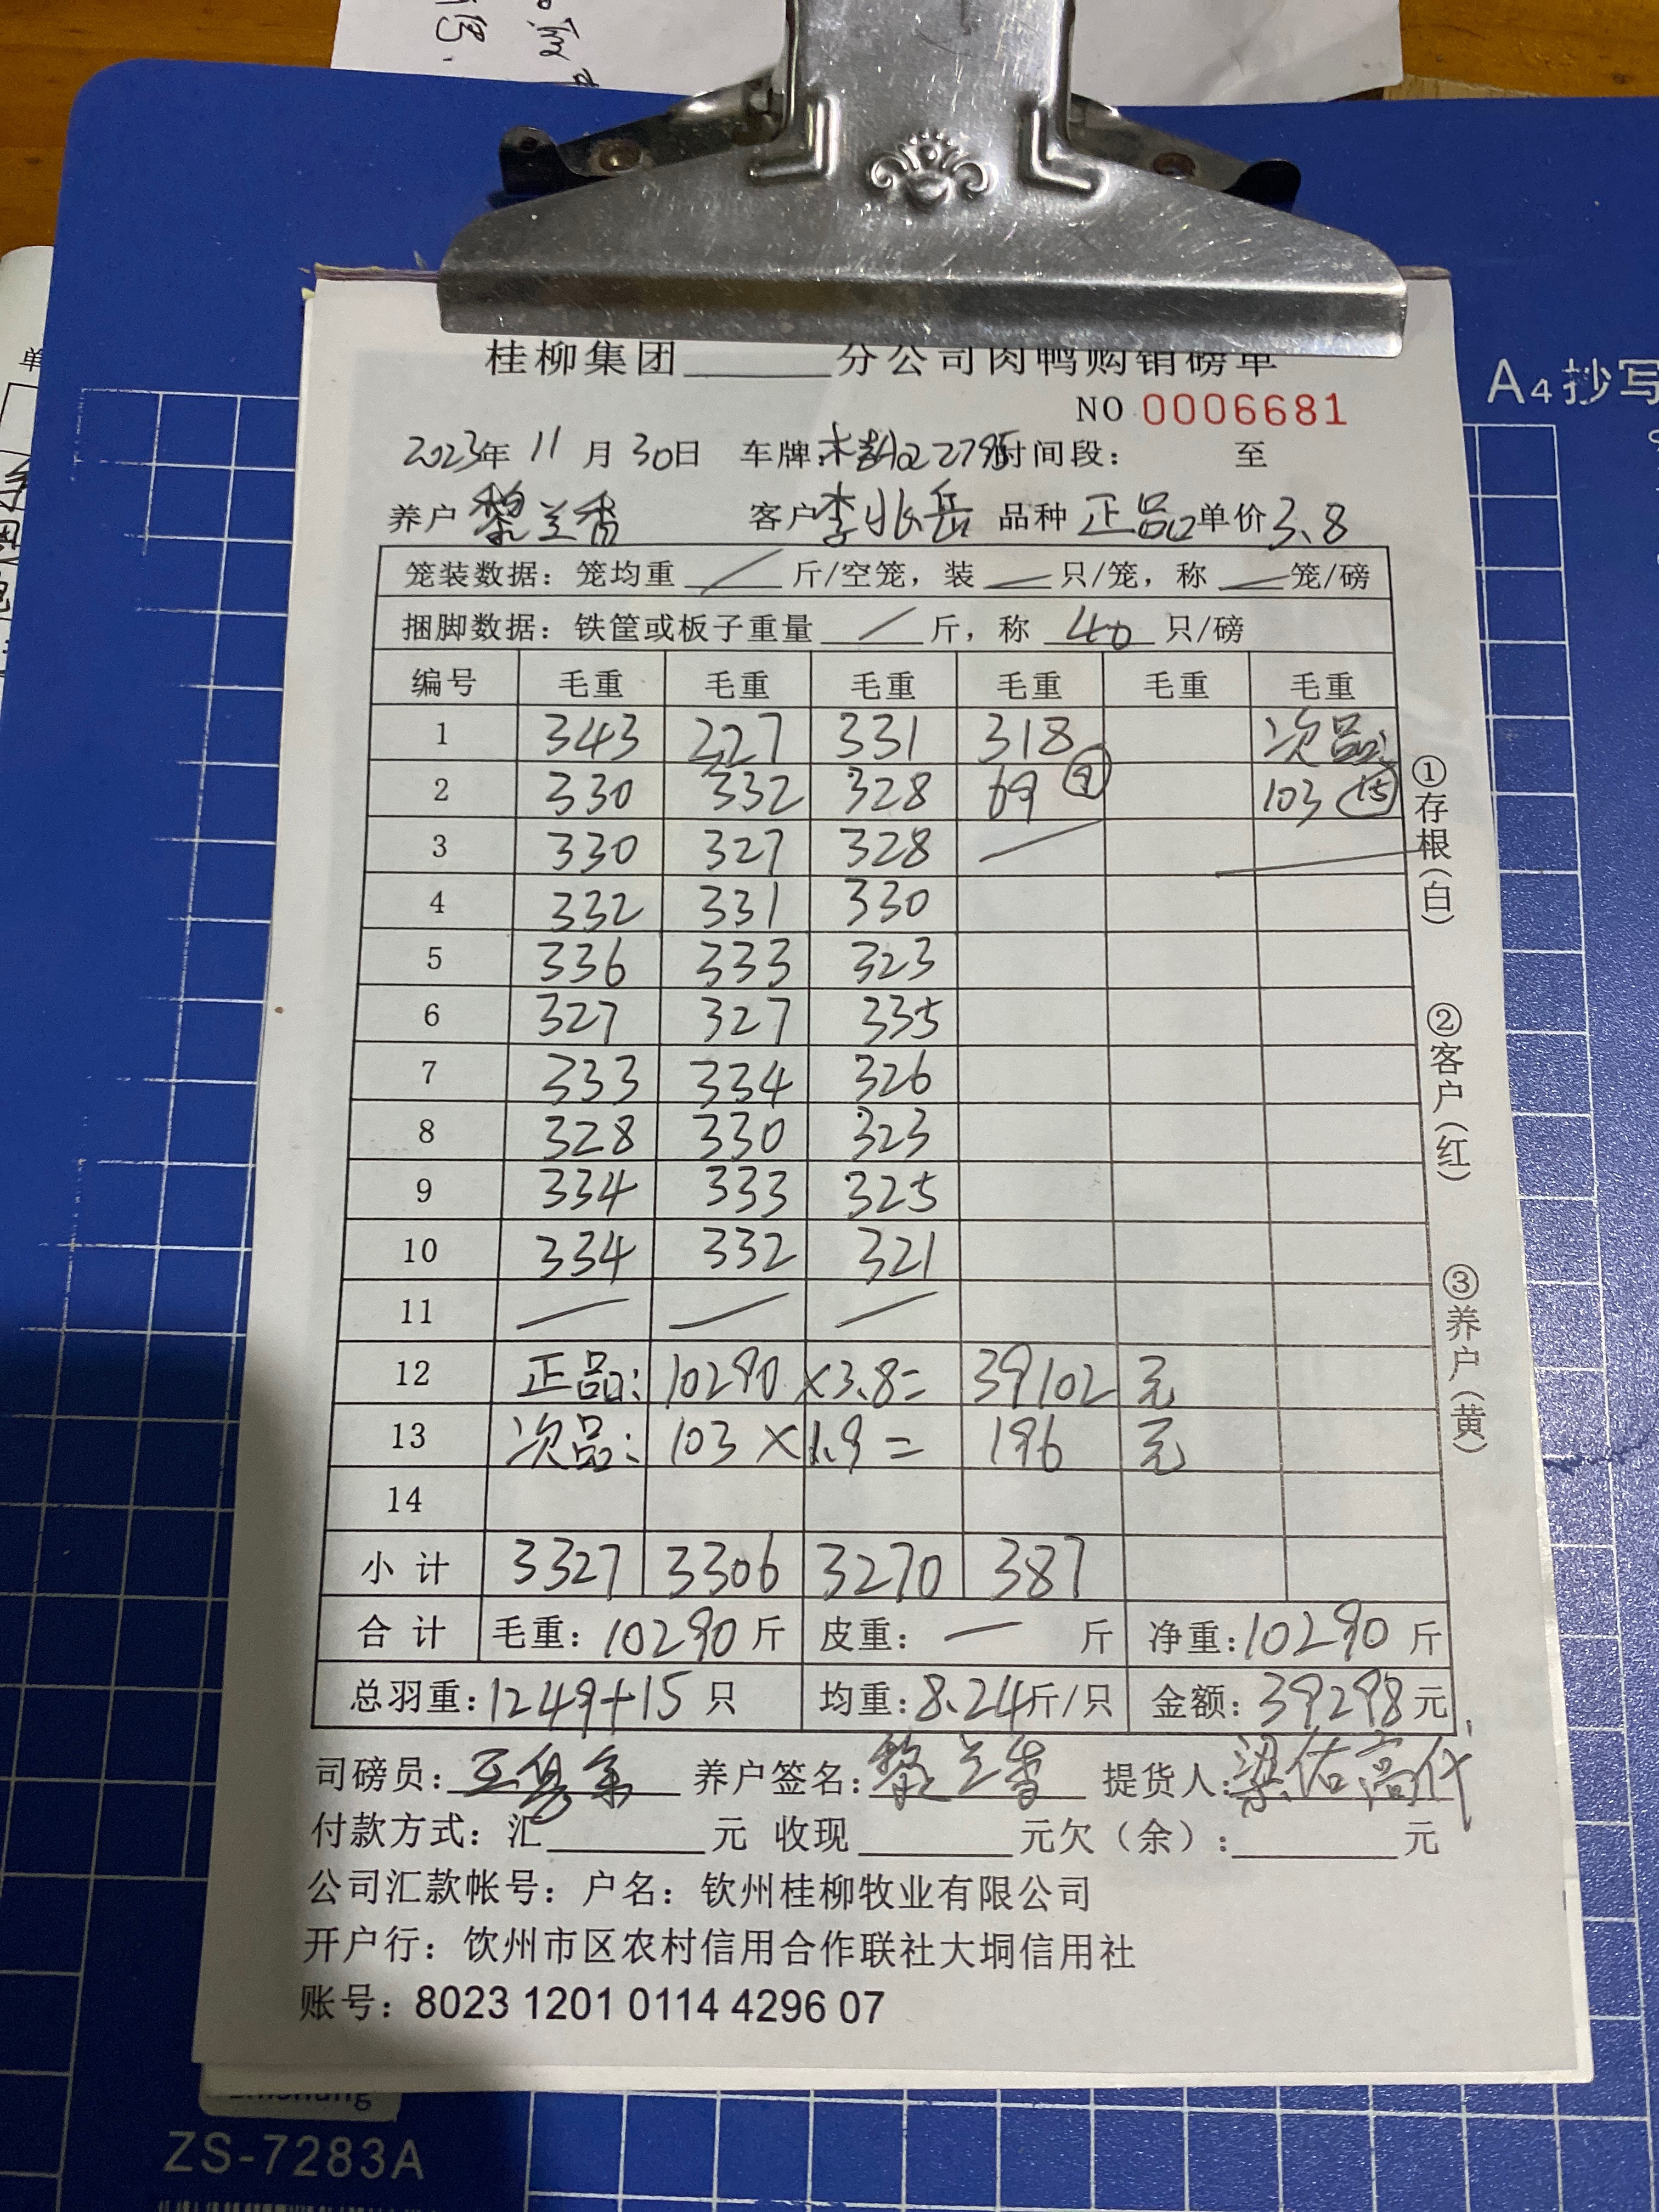 A4抄写
桂柳集团______分公司肉鸭购销磅单
NO 0006681
2023年 11 月 30日 车牌: 22795 时间段: 至
养户 黎兰香 客户 李兆岳 品种 正品 单价 3.8
笼装数据: 笼均重 / 斤/空笼, 装 — 只/笼, 称 — 笼/磅
捆脚数据: 铁筐或板子重量 / 斤, 称 40 只/磅
编号 毛重 毛重 毛重 毛重 毛重 毛重
1 343 227 331 318 次品:
2 330 332 328 69 ⑨ 103 ⑮
3 330 327 328 /
4 332 331 330
5 336 333 323
6 327 327 335
7 333 334 326
8 328 330 323
9 334 333 325
10 334 332 321
11 / / /
12 正品: 10290 ×3.8= 39102 元
13 次品: 103 × 1.9 = 196 元
14
小计 3327 3306 3270 387
合计 毛重: 10290 斤 皮重: — 斤 净重: 10290 斤
总羽重: 1249+15 只 均重: 8.24斤/只 金额: 39298元
司磅员: 养户签名: 黎兰香 提货人: 梁佑高代
付款方式: 汇______元 收现______元欠（余）: ______元
公司汇款帐号: 户名: 钦州桂柳牧业有限公司
开户行: 钦州市区农村信用合作联社大垌信用社
账号: 8023 1201 0114 4296 07
①存根（白）
②客户（红）
③养户（黄）
ZS-7283A